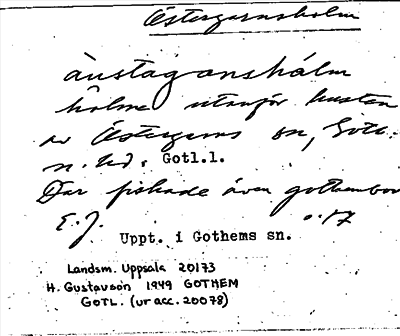 Östergarnsholm
åustaganshålm
holme utanför kusten
av Östergarns sn, Gotl.
n. hd. Gotl.l.
Där fiskade även gothembor
E.J.
Uppt. i Gothems sn.
Landsm. Uppsala 20173
H. Gustavson 1949 GOTHEM
GOTL. (ur acc. 20078)